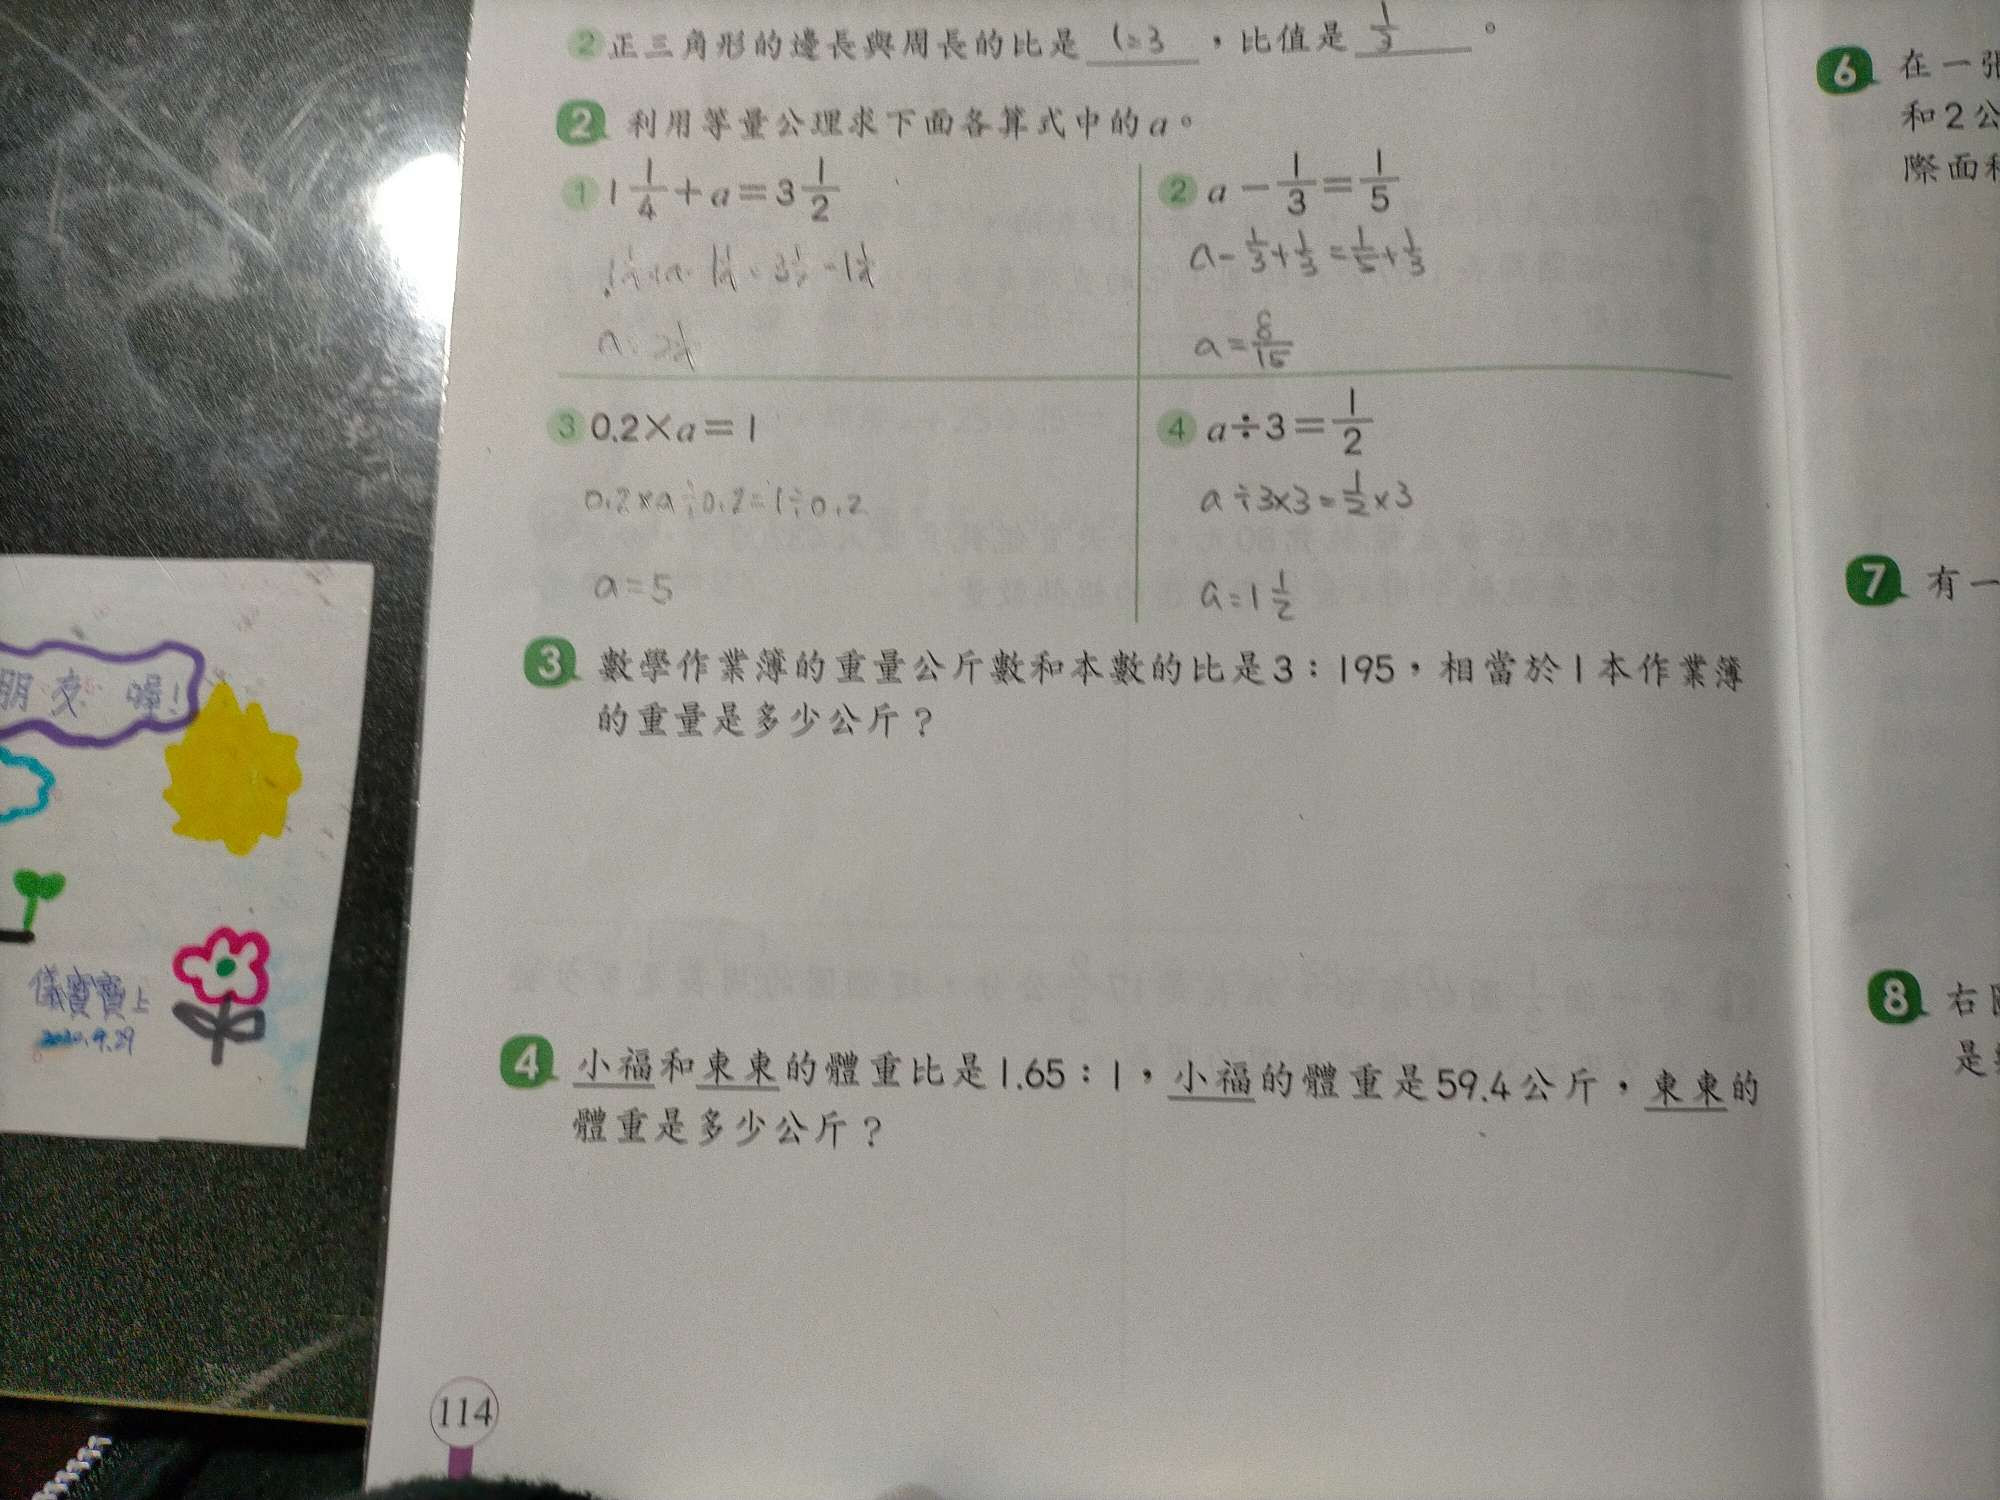 2 正三角形的邊長與周長的比是 1:3 ，比值是 1/3 。
2 利用等量公理求下面各算式中的a。
1 1 1/4 + a = 3 1/2
1 1/4 + a - 1 1/4 = 3 1/2 - 1 1/4
2 a - 1/3 = 1/5
a - 1/3 + 1/3 = 1/5 + 1/3
a = 8/15
3 0.2×a=1
0.2×a÷0.2=1÷0.2
a=5
4 a÷3= 1/2
a÷3×3= 1/2 ×3
a=1 1/2
3 數學作業簿的重量公斤數和本數的比是3：195，相當於1本作業簿
的重量是多少公斤？
4 小福和東東的體重比是1.65：1，小福的體重是59.4公斤，東東的
體重是多少公斤？
114
6 在一張
和2公
際面積
7 有一
8 右圖
是
朋友 喔！
儀寶寶上
2020.9.29